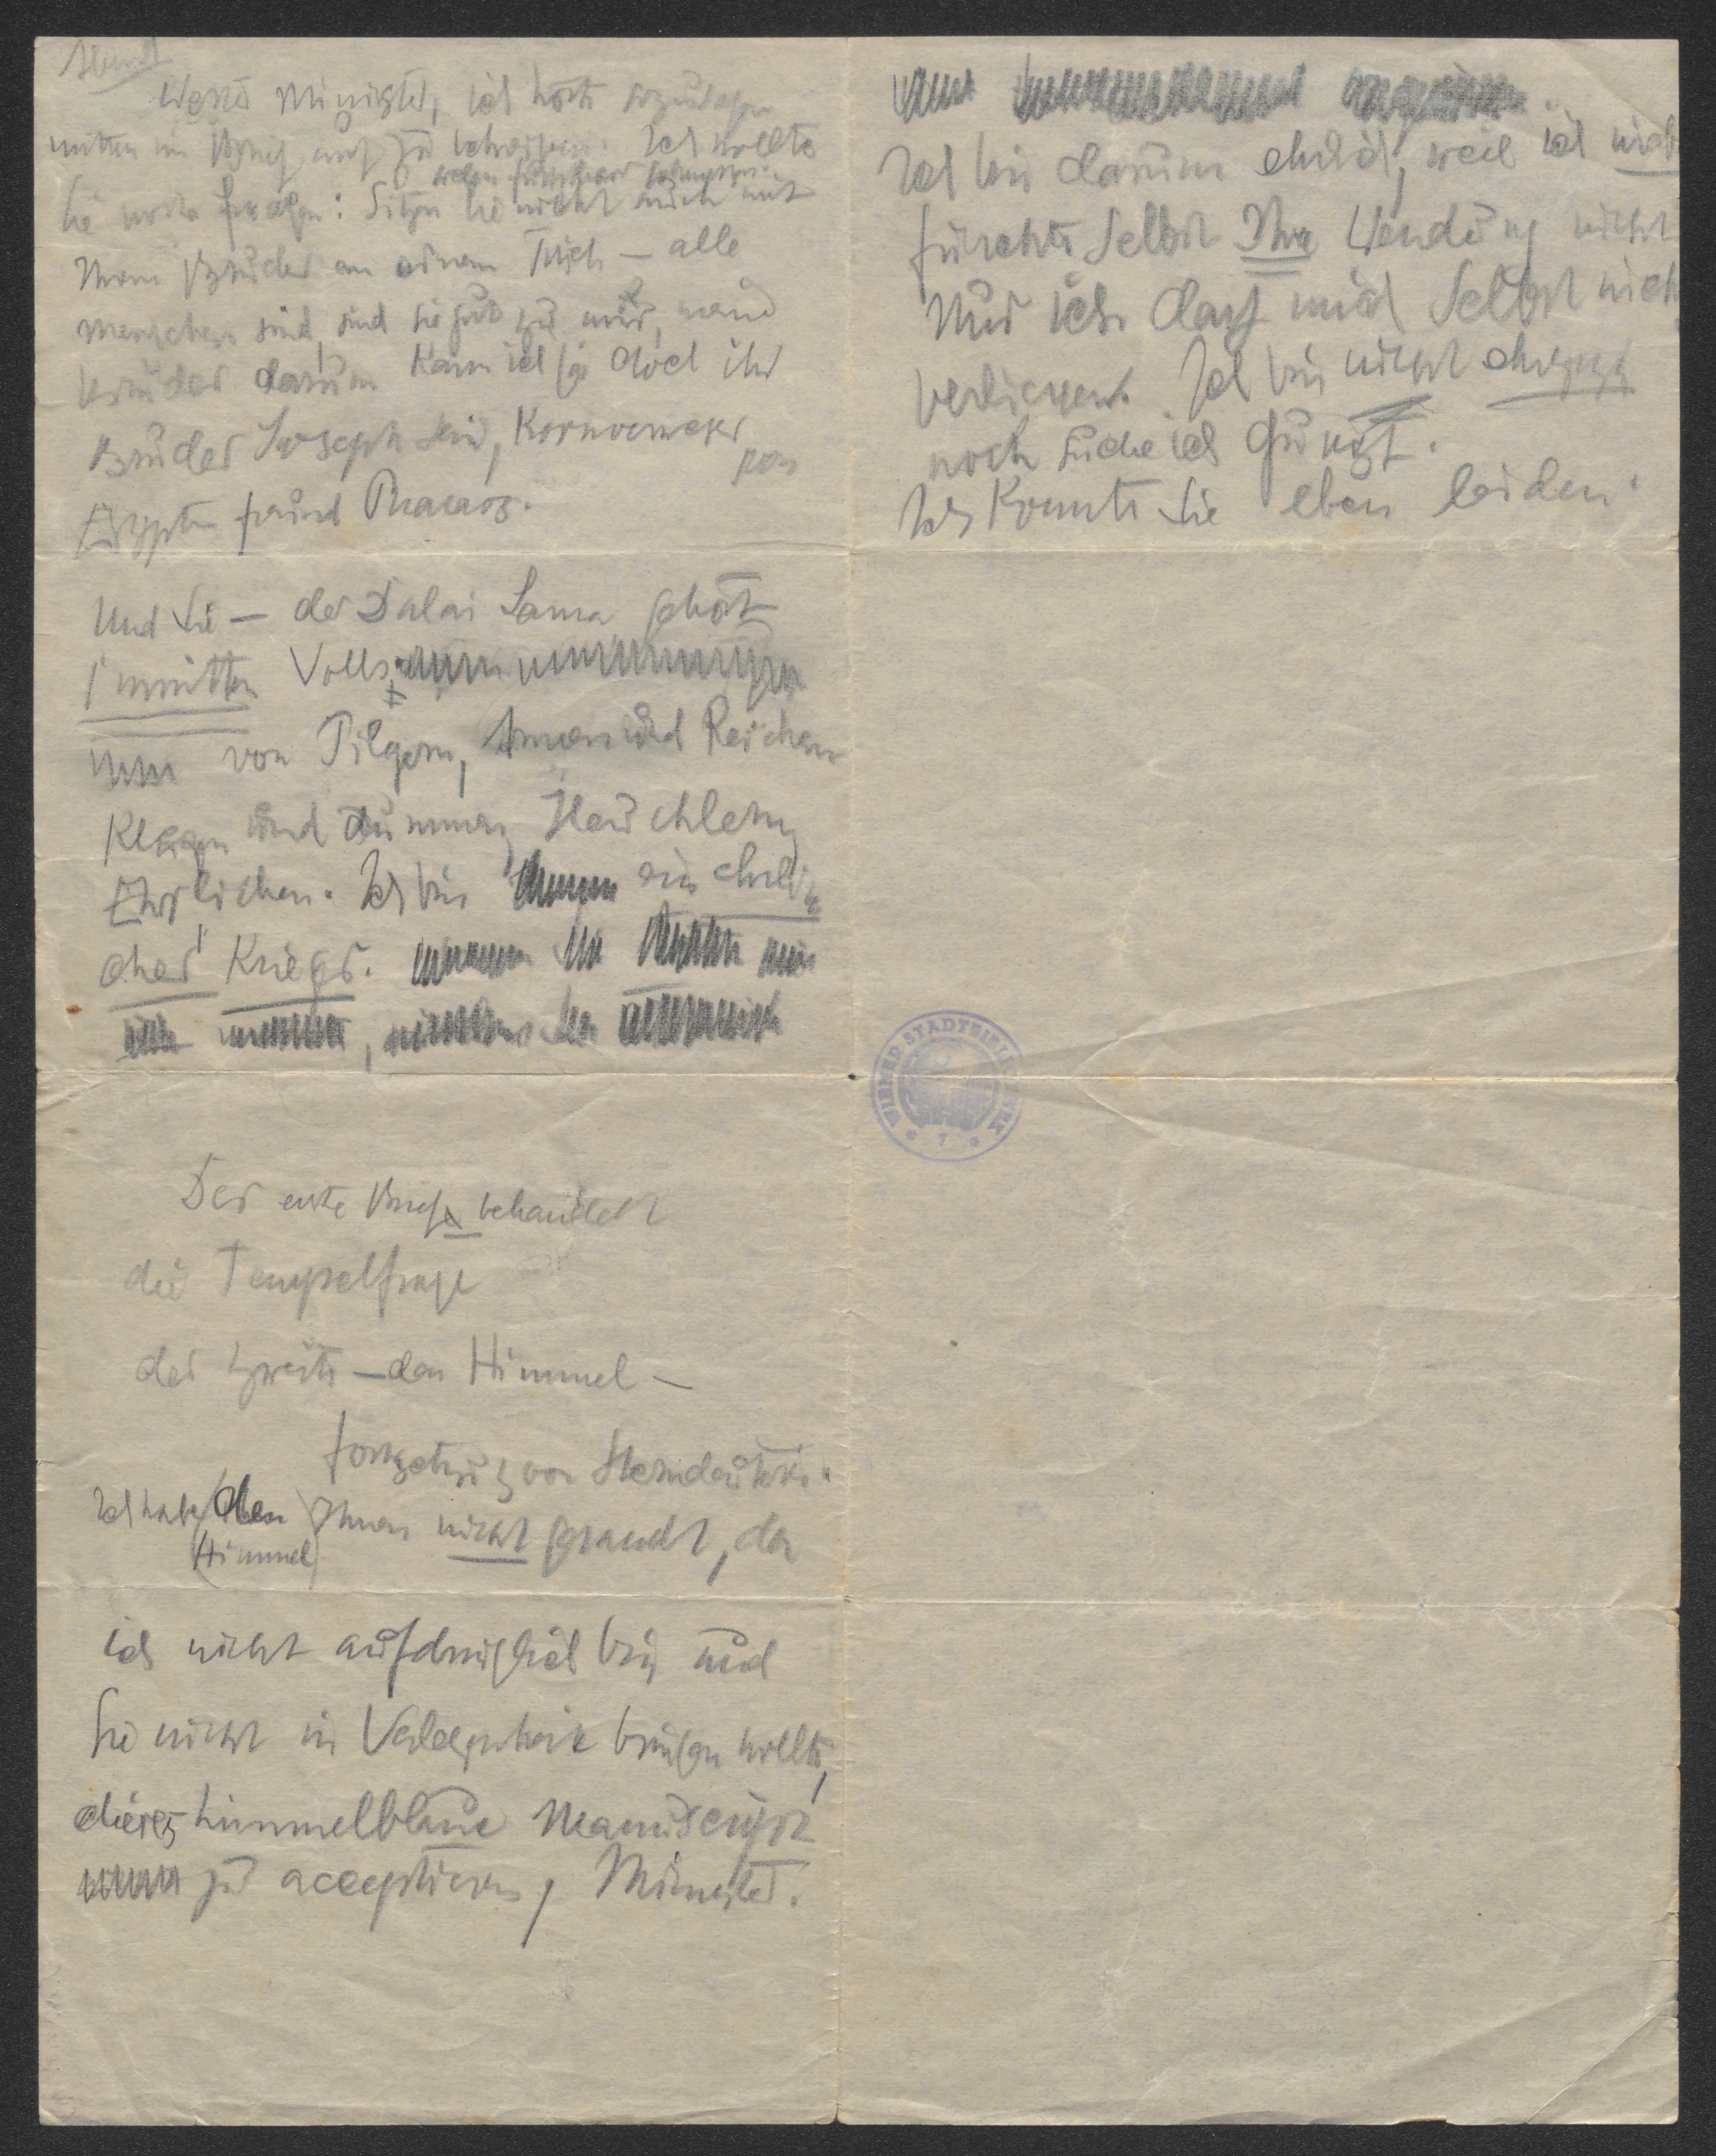 Abend
Werter Minister, ich hörte sozusagen
mitten im Brief auf zu schreiben. Ich wollte
Sie noch fragen: Sitzen Sie nicht auch mit
Ihrem Bruder an einem Tisch — alle
Menschen sind, sind Sie gut zu mir,
Bruder darum kann ich ja doch Ihr
Bruder Joseph sein, Kornverweser von
Egypten freund Pharaos.
Und Sie — der Dalai Lama gehört
inmitten Volks
von Pilgern, Armen und Reichen
Klugen und Dummen, Heuchlern,
Ehrlichen. Ich bin ein ehrli
cher Krieger.
Der erste Brief behandelt
die Tempelfrage
der zweite — den Himmel —
fortsetzung von Sterndeuterei.
Ich habe (den Himmel) Ihnen nicht gesandt, da
ich nicht aufdringlich bin und
Sie nicht in Verlegenheit bringen wollte,
dieses himmelblaue Manuscript
zu acceptieren, Minister.
Ich bin darum ehrlich, weil ich nicht
fürchte selbst Ihre Wendung nicht
Nur ich darf mich selbst nich
verlieren. Ich bin nicht ehrgeizig
noch suche ich Gunst.
Ich konnte Sie eben leiden.
WIENER STADTBIBLIOTHEK